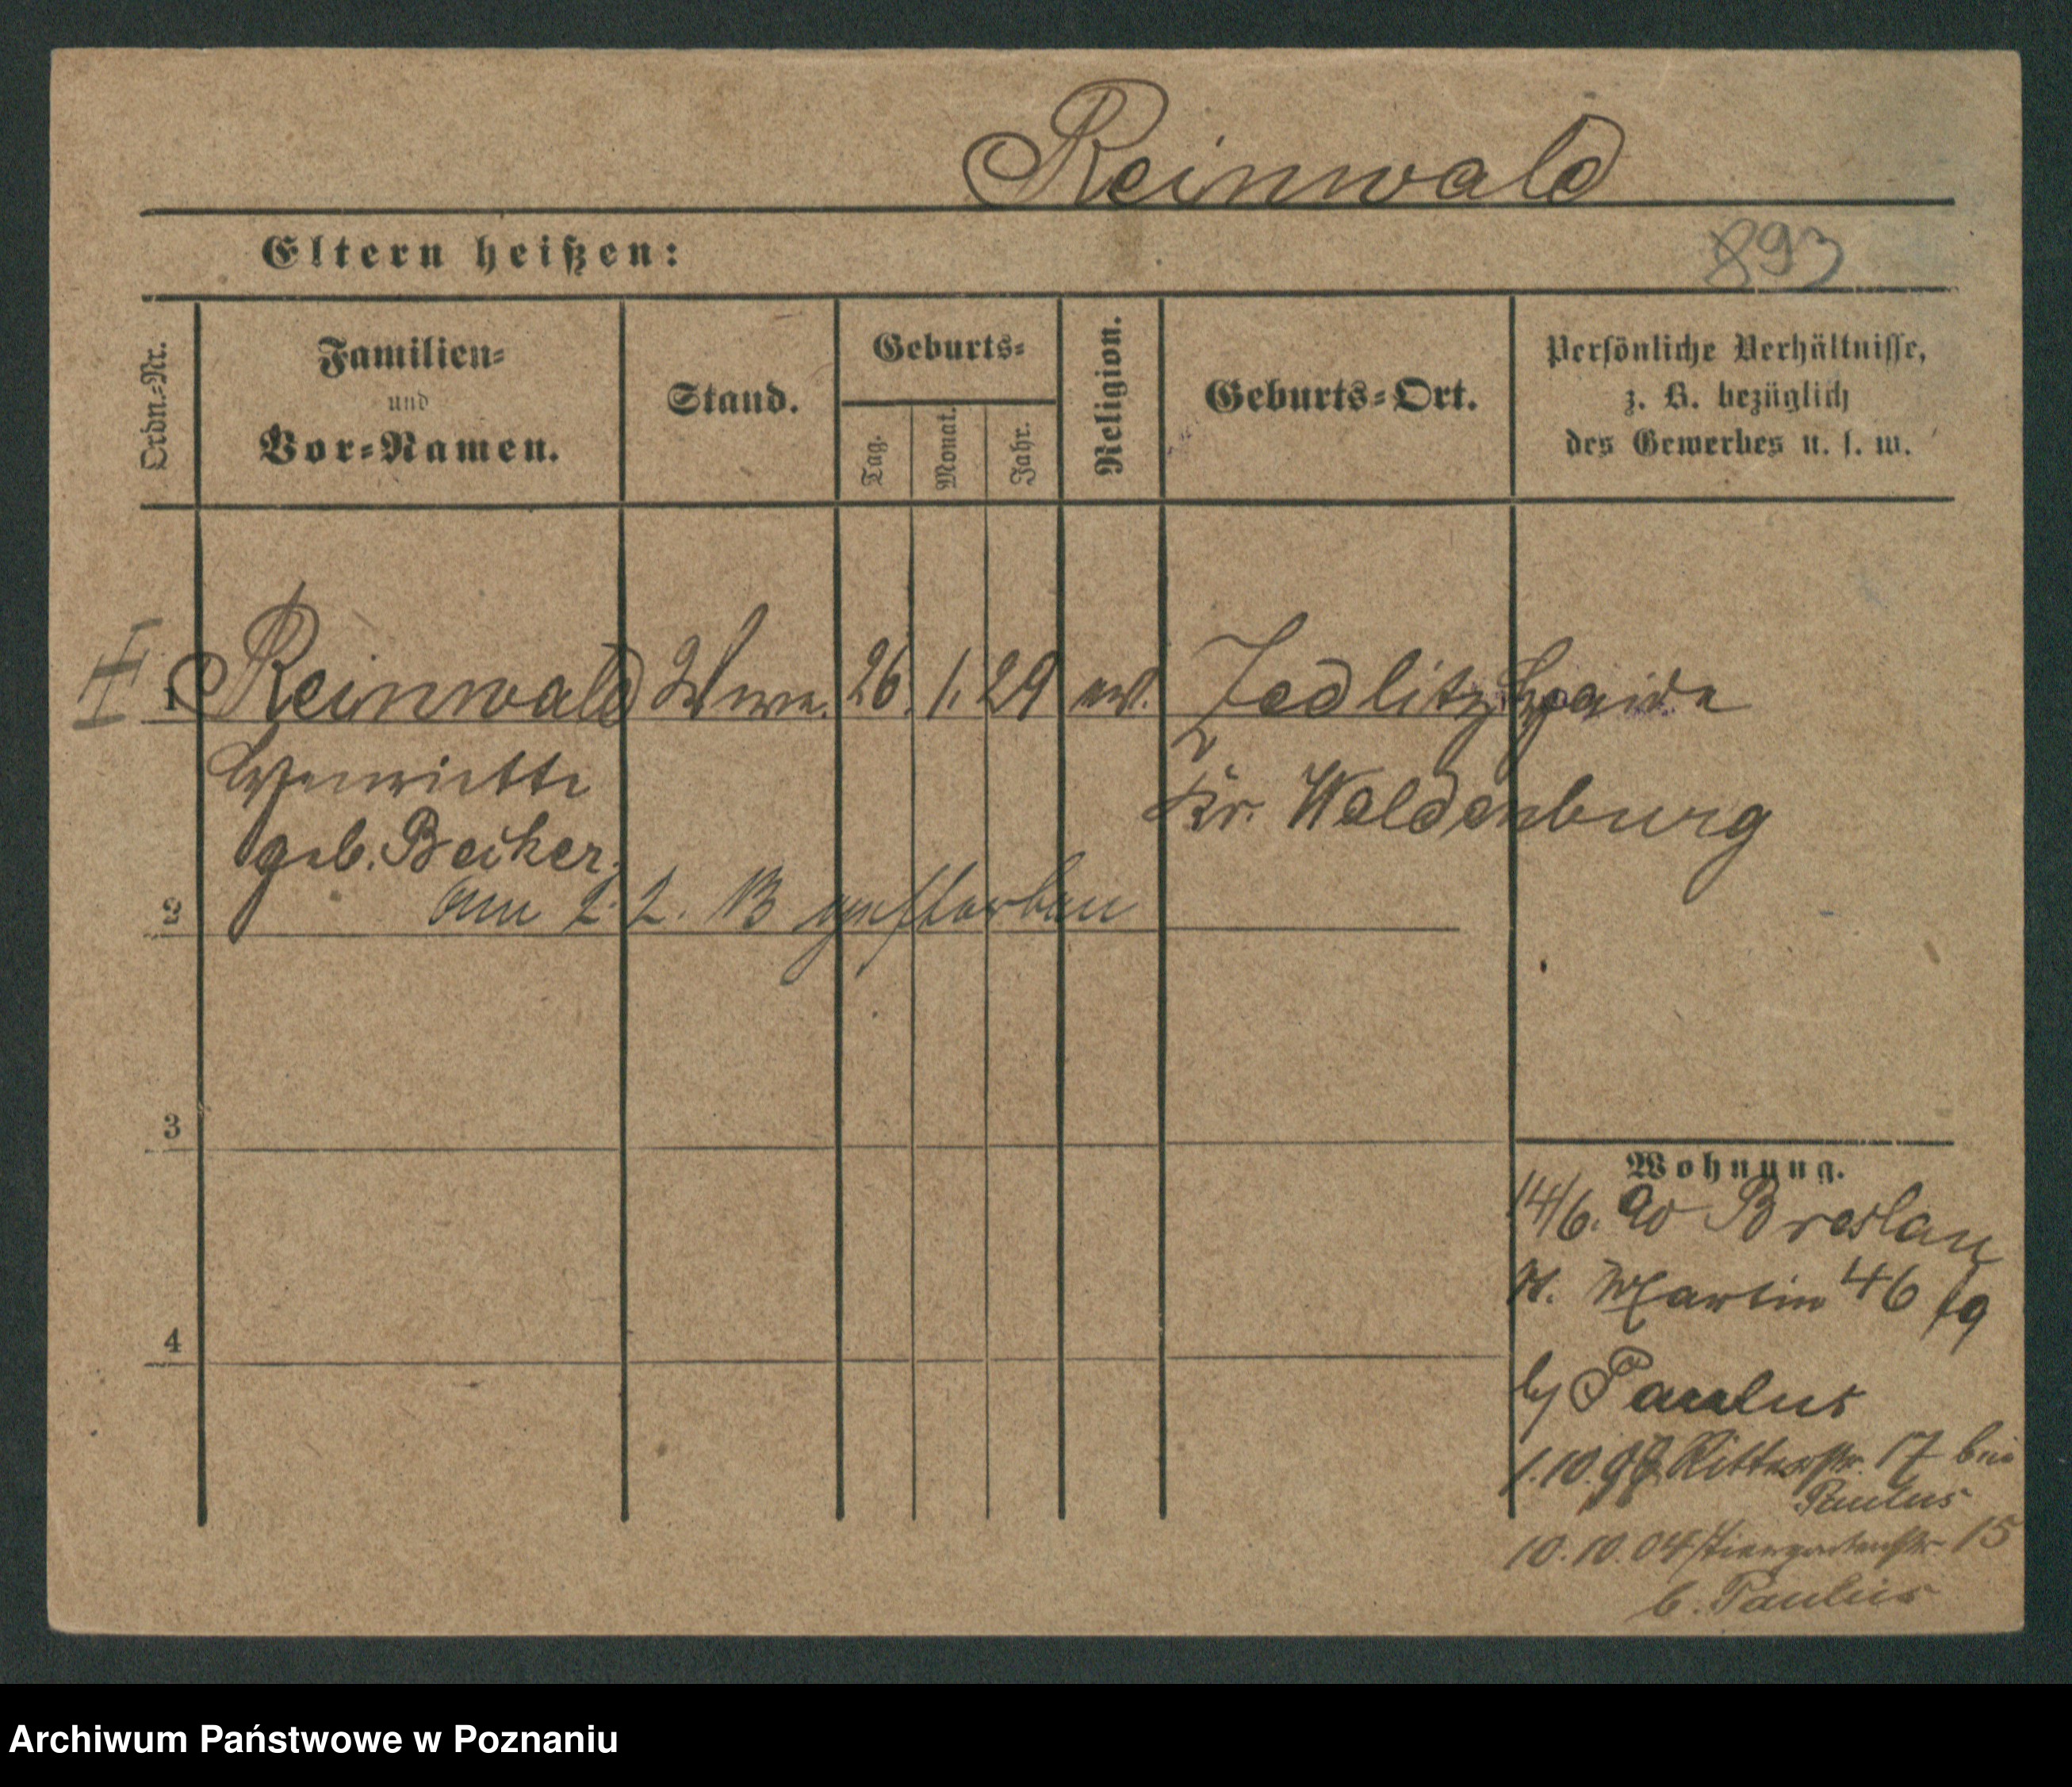 Reinwald
Eltern heißen:
893
Ordn.-Nr.
Familien-
und
Vor-Namen.
Stand.
Geburts-
Tag.
Monat.
Jahr.
Religion.
Geburts-Ort.
Persönliche Verhältnisse,
z. B. bezüglich
des Gewerbes u. s. w.
II
1 Reinwald Wwe. 26. 1. 29 ev. Jedlitzhaide
Henriette Kr. Waldenburg
geb. Becker,
2 am 2. 2. 13 gestorben
3
4
Wohnung.
14/6. 90 Breslau
St. Martin 46
by Paulus
1.10. Ritterstr. 17 bei
Paulus
10.10.04 Tiergartenstr. 15
b. Paulus
Archiwum Państwowe w Poznaniu